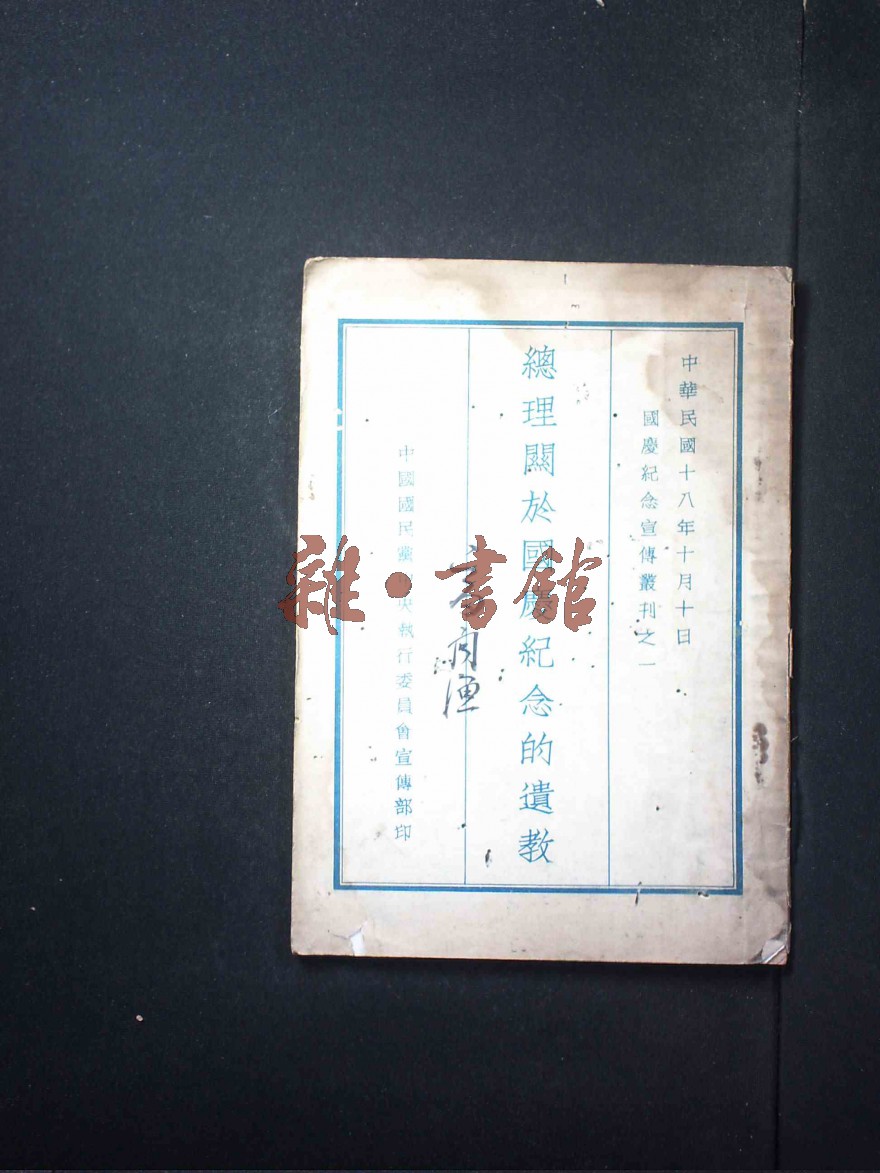 中華民國十八年十月十日
國慶紀念宣傳叢刊之一
總理關於國慶紀念的遺教
中國國民黨中央執行委員會宣傳部印
雜·書館